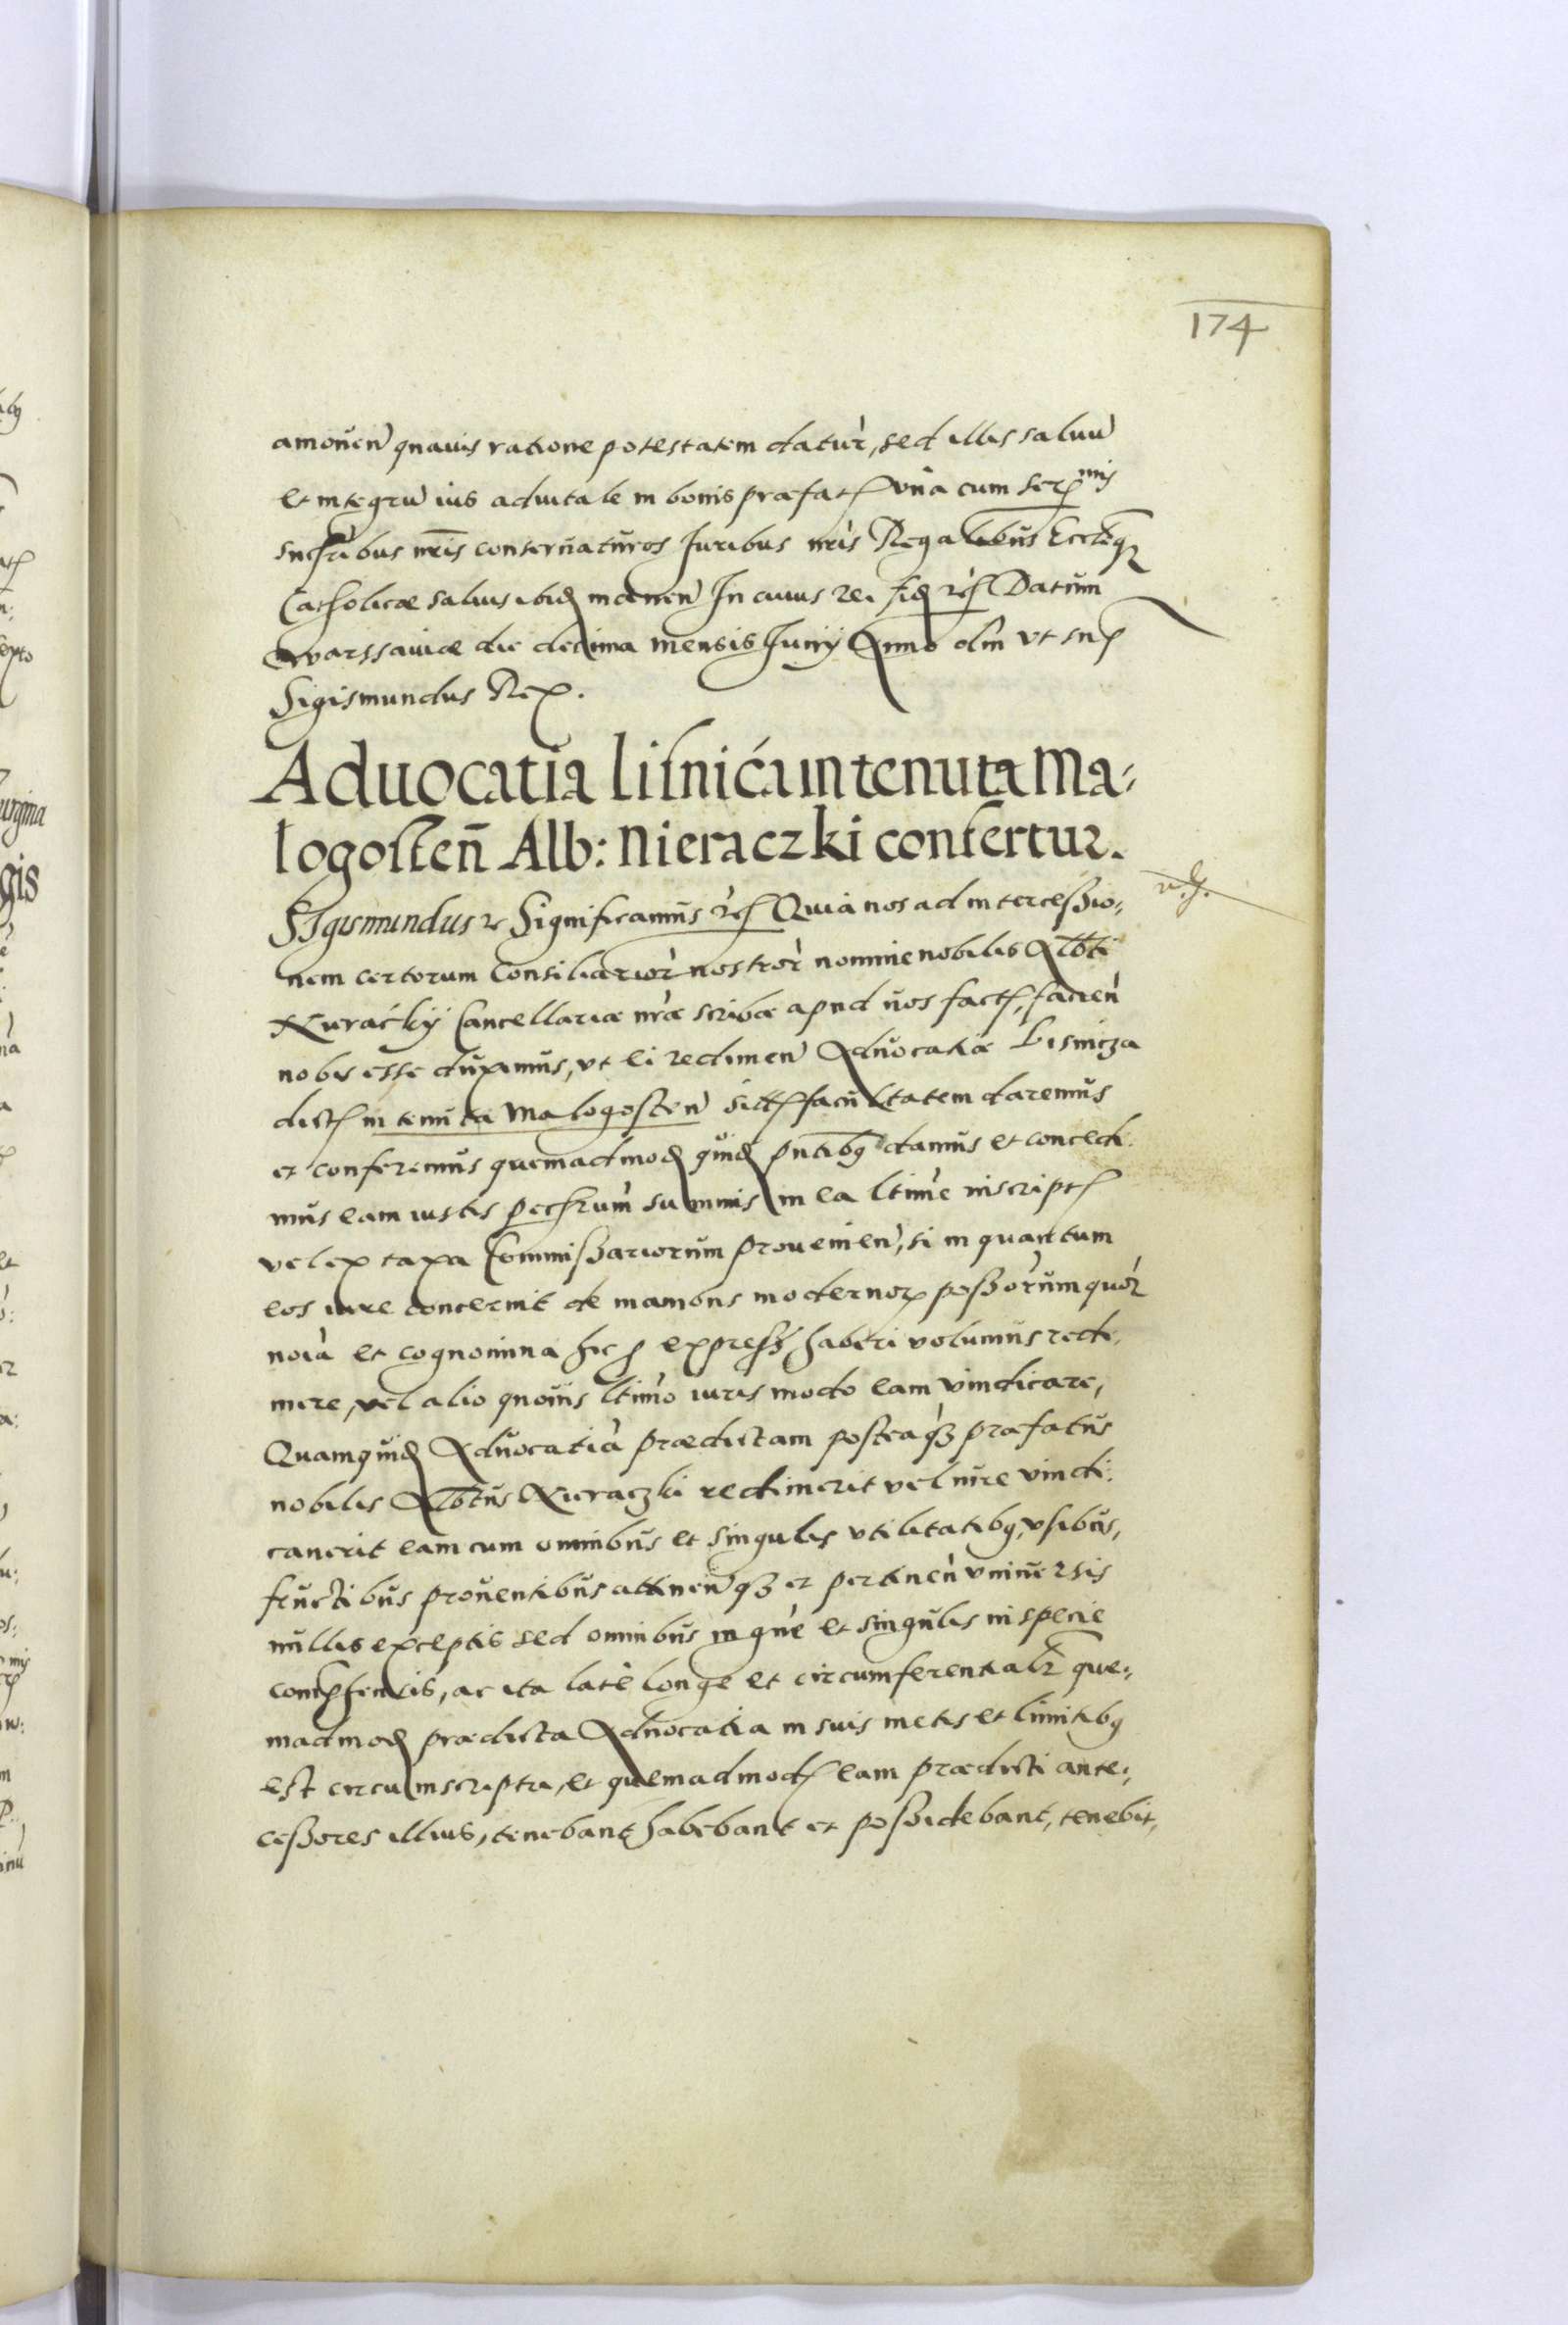 174
amouen̄ quauis ratione potestatem datur̄, sed illis saluū
et integrū ius aduitale in bonis praefat. vna cum Ser.mis
Suc̄ribus nr̄is conseruaturos Juribus nr̄is Regalibus Eccl̄eq3
Catholicae saluis ibid. manen̄ In cuius rei fid. rc̄. Datum
Warssauiae die decima mensis Junij Anno Dn̄i vt sup.
Sigismundus Rex.
Aduocatia lisnića in tenuta Ma-
logosten̄ Alb: Nieraczki confertur.
SIgismundus rc̄ Significamus rc̄. Quia nos ad intercessio-
nem certorum Consiliarior̄ nostror̄ nomine nobilis Alb̄ti
Nieraćkij Cancellariae nr̄ae scribae apud nos fact., facien̄
nobis esse duximus, vt ei redimen̄ Aduocatiae Lisnicza
dict. in tenuta Malogosten̄ sit. facultatem daremus
et conferemus quemadmod. quid. pn̄tibq damus et concedi-
mus eam iustis pec̄rum summis in ea l̄time inscript.
vel ex taxa Commissariorum prouenien̄, si in quantum
eos iure concernit de manibus modernor. possōrum quor̄
noīa et cognomina hic p. express. haberi volumus redi-
mere, vel alio quouis l̄timo iuris modo eam vindicare,
Quamquid. Aduocatiā praedictam posteaq3 praefatus
nobilis Alb̄tus Nieraczki redimerit vel iure vindi-
cauerit eam cum omnibus et singulis vtilitatibq, vsibus,
fructibus prouentibus attinen̄q3 et pertinen̄ vniuersis
nullis exceptis sed omnibus in gn̄e et singulis in specie
comp̄hensis, ac ita late longe et circumferentialr̄ que-
madmod. praedicta Aduocatia in suis metis et limitibq
est circumscripta, et quemadmod. eam praedicti ante-
cessores illius, tenebant habebant et possidebant, tenebit,